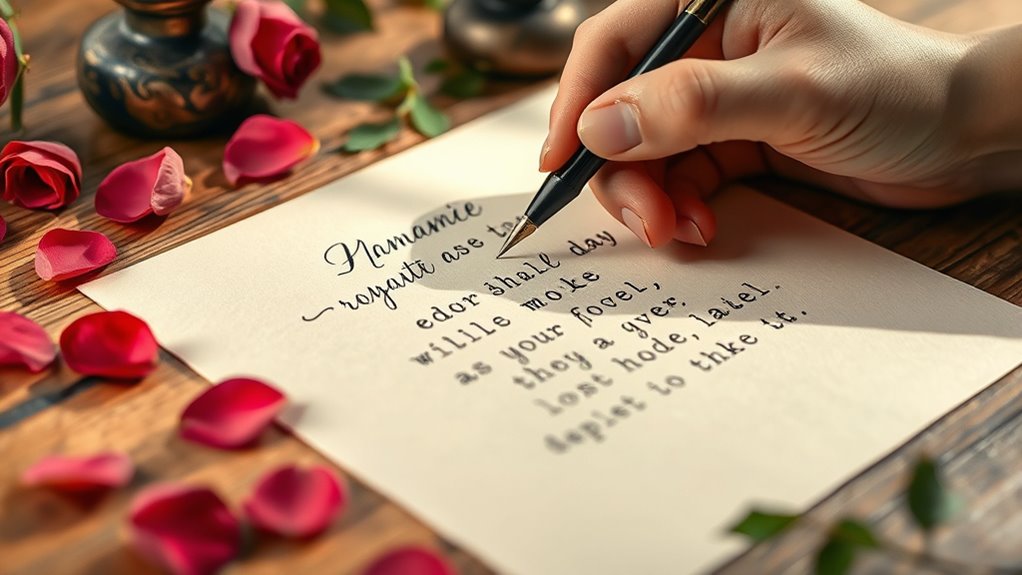 Mamamie
royaiti ase to
edor shall day
willle moke
as your fiovel,
thoy a gver.
lost hode, latel.
deplet io thke it.